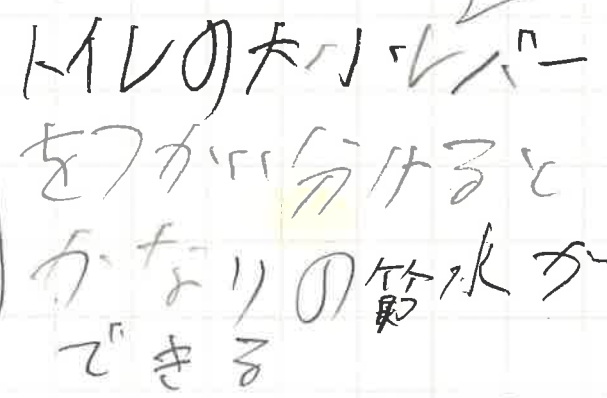 トイレの大小レバー
をつかい分けると
かなりの節水が
できる